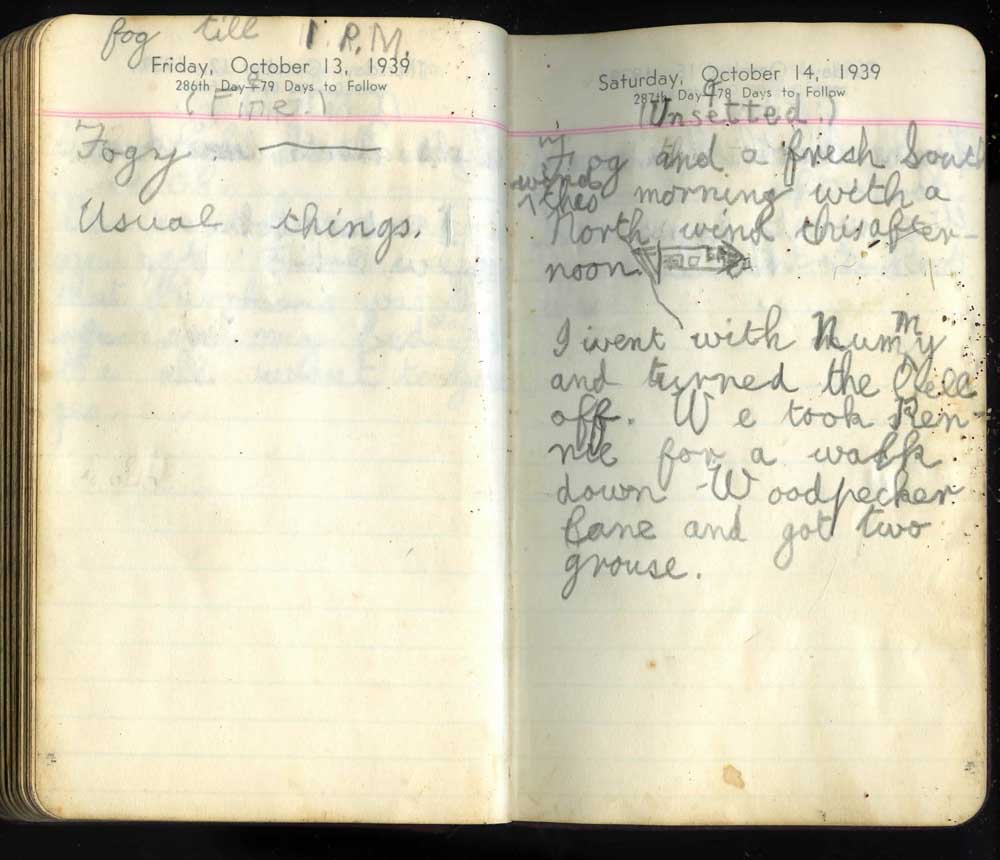 fog till 1 P.M.
Friday, October 13, 1939
286th Day—79 Days to Follow
(Fine.)
Fogy.
Usual things.
Saturday, October 14, 1939
287th Day—78 Days to Follow
(Unsetted.)
Fog and a fresh South
wind this morning with a
North wind this after-
noon.
I went with Mummy
and turned the
off. We took Ren-
nie for a walk
down Woodpecker
Lane and got two
grouse.